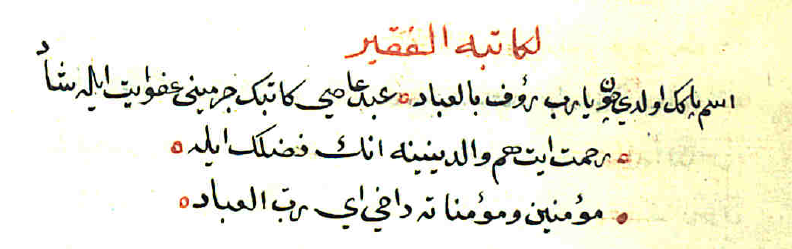 لكاتبه الفقير
اسم پاكك اولدي چون يارب رؤف بالعباد ٥ عبد عاصي كاتبك جرميني عفو ايت ايله شاد
٥ رحمت ايت هم والدينينه انك فضلك ايله ٥
٥ مؤمنين ومؤمناته داخي اي رب العباد ٥